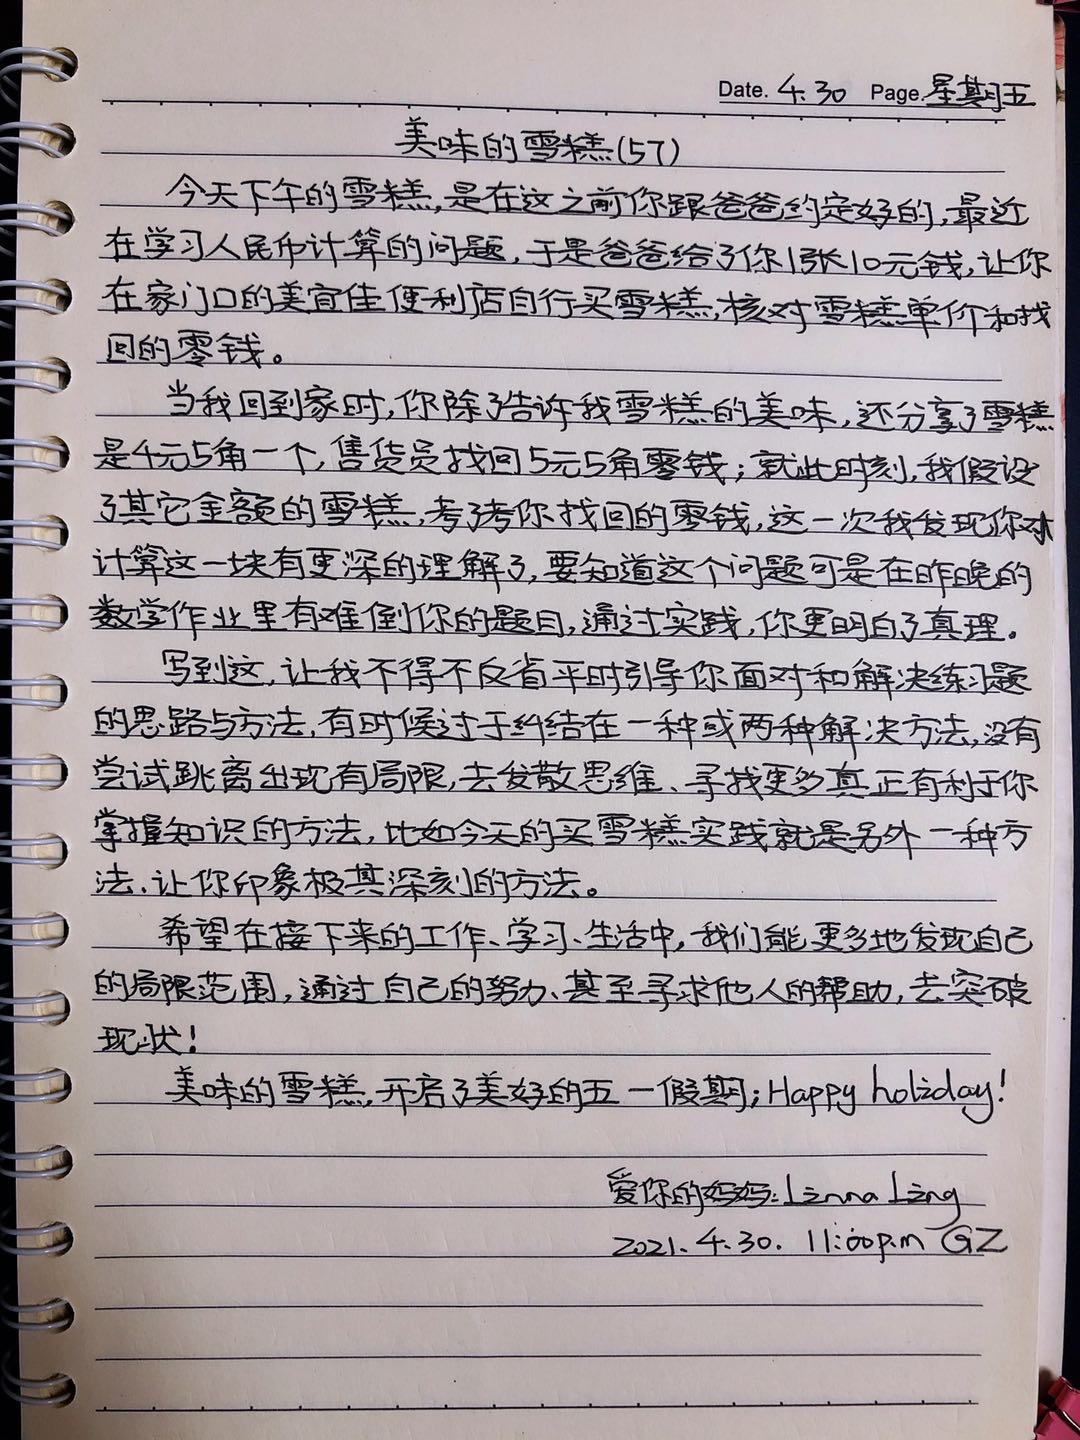 Date. 4.30 Page. 星期五
美味的雪糕(57)
今天下午的雪糕,是在这之前你跟爸爸约定好的,最近
在学习人民币计算的问题,于是爸爸给了你1张10元钱,让你
在家门口的美宜佳便利店自行买雪糕,核对雪糕单价和找
回的零钱。
当我回到家时,你除了告诉我雪糕的美味,还分享了雪糕
是4元5角一个,售货员找回5元5角零钱;就此时刻,我假设
了其它金额的雪糕,考了考你找回的零钱,这一次我发现你对
计算这一块有更深的理解了,要知道这个问题可是在昨晚的
数学作业里有难倒你的题目,通过实践,你更明白了真理。
写到这,让我不得不反省平时引导你面对和解决练习题
的思路与方法,有时候过于纠结在一种或两种解决方法,没有
尝试跳离出现有局限,去发散思维、寻找更多真正有利于你
掌握知识的方法,比如今天的买雪糕实践就是另外一种方
法、让你印象极其深刻的方法。
希望在接下来的工作、学习、生活中,我们能更多地发现自己
的局限范围,通过自己的努力、甚至寻求他人的帮助,去突破
现状!
美味的雪糕,开启了美好的五一假期;Happy holiday!
爱你的妈妈:Linna Ling
2021.4.30. 11:00p.m GZ